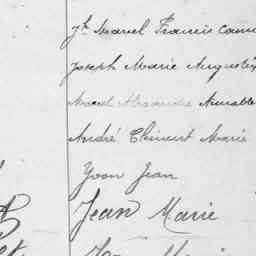 Jh Marcel Francis
Joseph Marie Augustin
Marcel Alexandre Aimable
André Clément Marie
Yvon Jean
Jean Marie